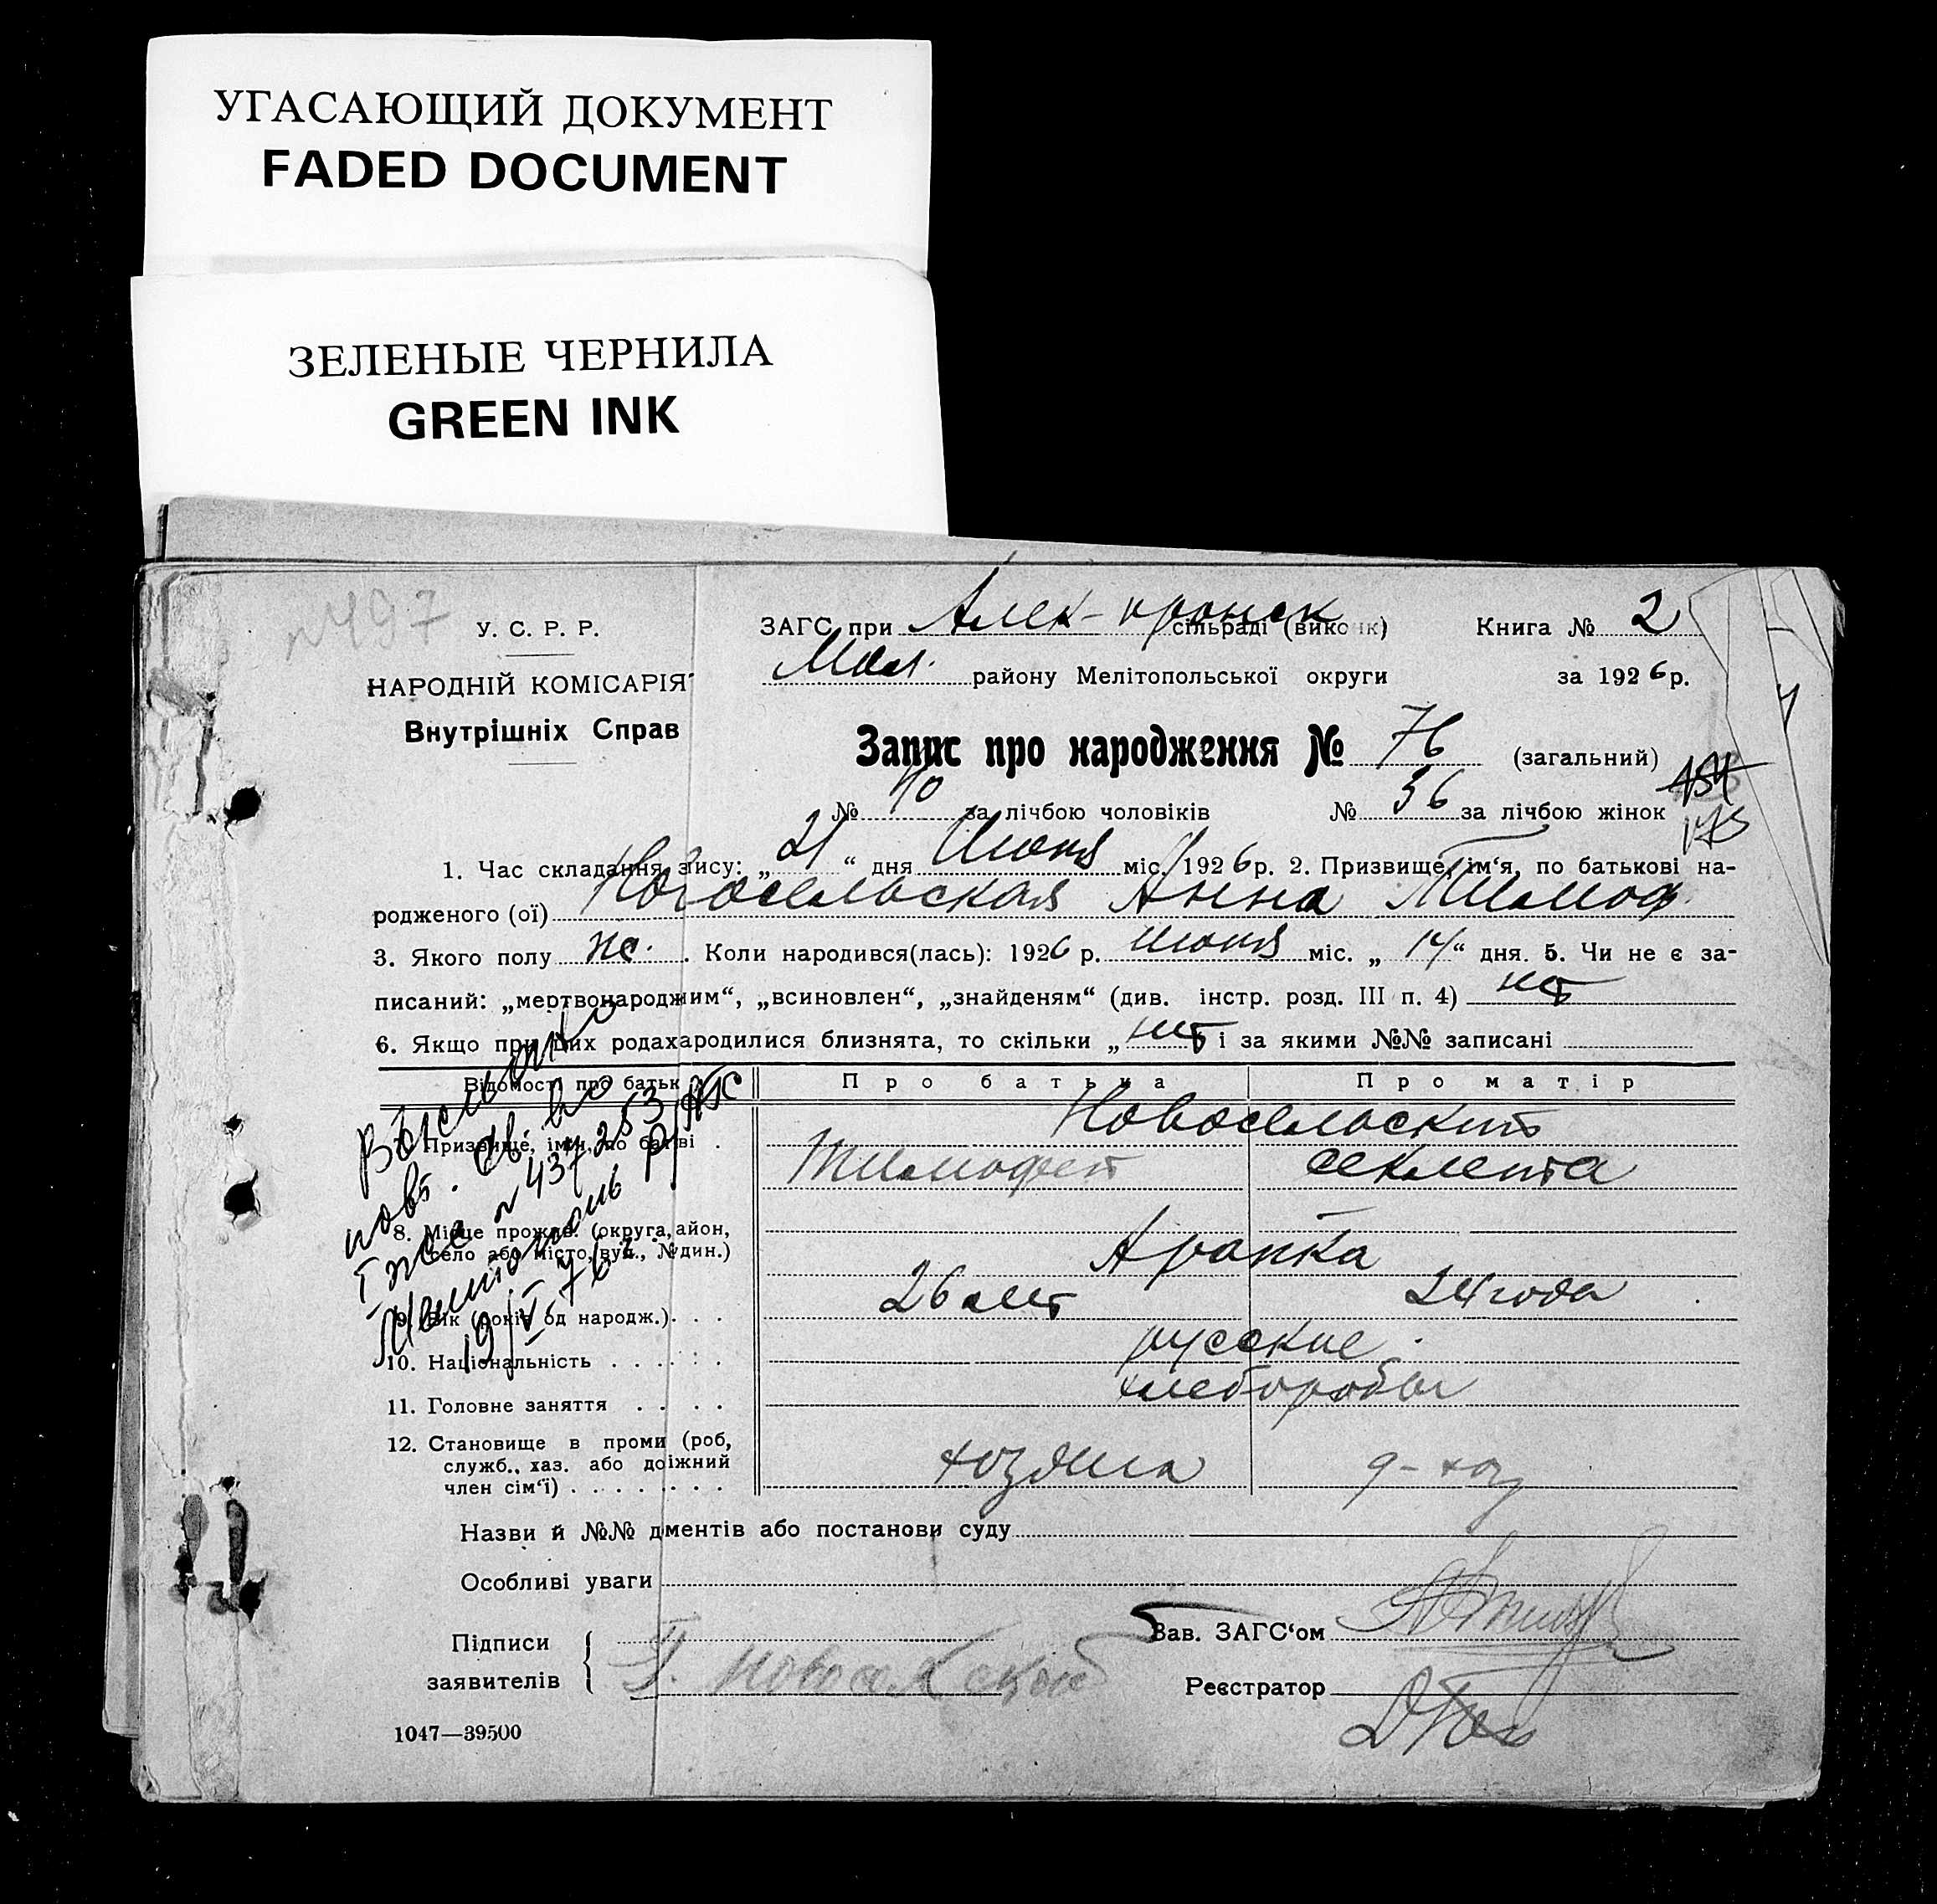 УГАСАЮЩИЙ ДОКУМЕНТ
FADED DOCUMENT
ЗЕЛЕНЫЕ ЧЕРНИЛА
GREEN INK
№497
У. С. Р. Р.
НАРОДНІЙ КОМІСАРІЯТ
Внутрішніх Справ
ЗАГС при Алек- сільраді (викон к)
Книга № 2
району Мелітопольської округи
за 1926 р.
Запис про народження № 76 (загальний)
№ 40 за лічбою чоловіків № 36 за лічбою жінок
175
1. Час складання зису: „21“ дня Июня міс. 1926 р. 2. Призвище, ім‘я, по батькові на-
родженого (ої) Новосельская Анна Тимоф.
3. Якого полу ж. . Коли народився(лась): 1926 р. июня міс. „14“ дня. 5. Чи не є за-
писаний: „мертвонароджим“, „всиновлен“, „знайденям“ (див. інстр. розд. III п. 4) нет
6. Якщо при цих родахародилися близнята, то скільки „нет і за якими №№ записані
Відомості про батьк
Про батька
Про матір
Призвище, імя, по батві
Новосельские
Тимофей
Секлета
8. Місце прожив. (округа, айон,
село або місто, вул., № дин.)
9. Вік (років од народж.)
26 лет
24 года
10. Національність
русские
11. Головне заняття
хлеборобы
12. Становище в проми (роб,
служб., хаз. або доіжний
член сім‘ї)
хозяин
Выслано
повт. св. во
I жс № 437253
19/V 76 г.
Назви й №№ дментів або постанови суду
Особливі уваги
Підписи
заявителів
Т. Новоселский
Зав. ЗАГС‘ом
Реєстратор
1047—39500